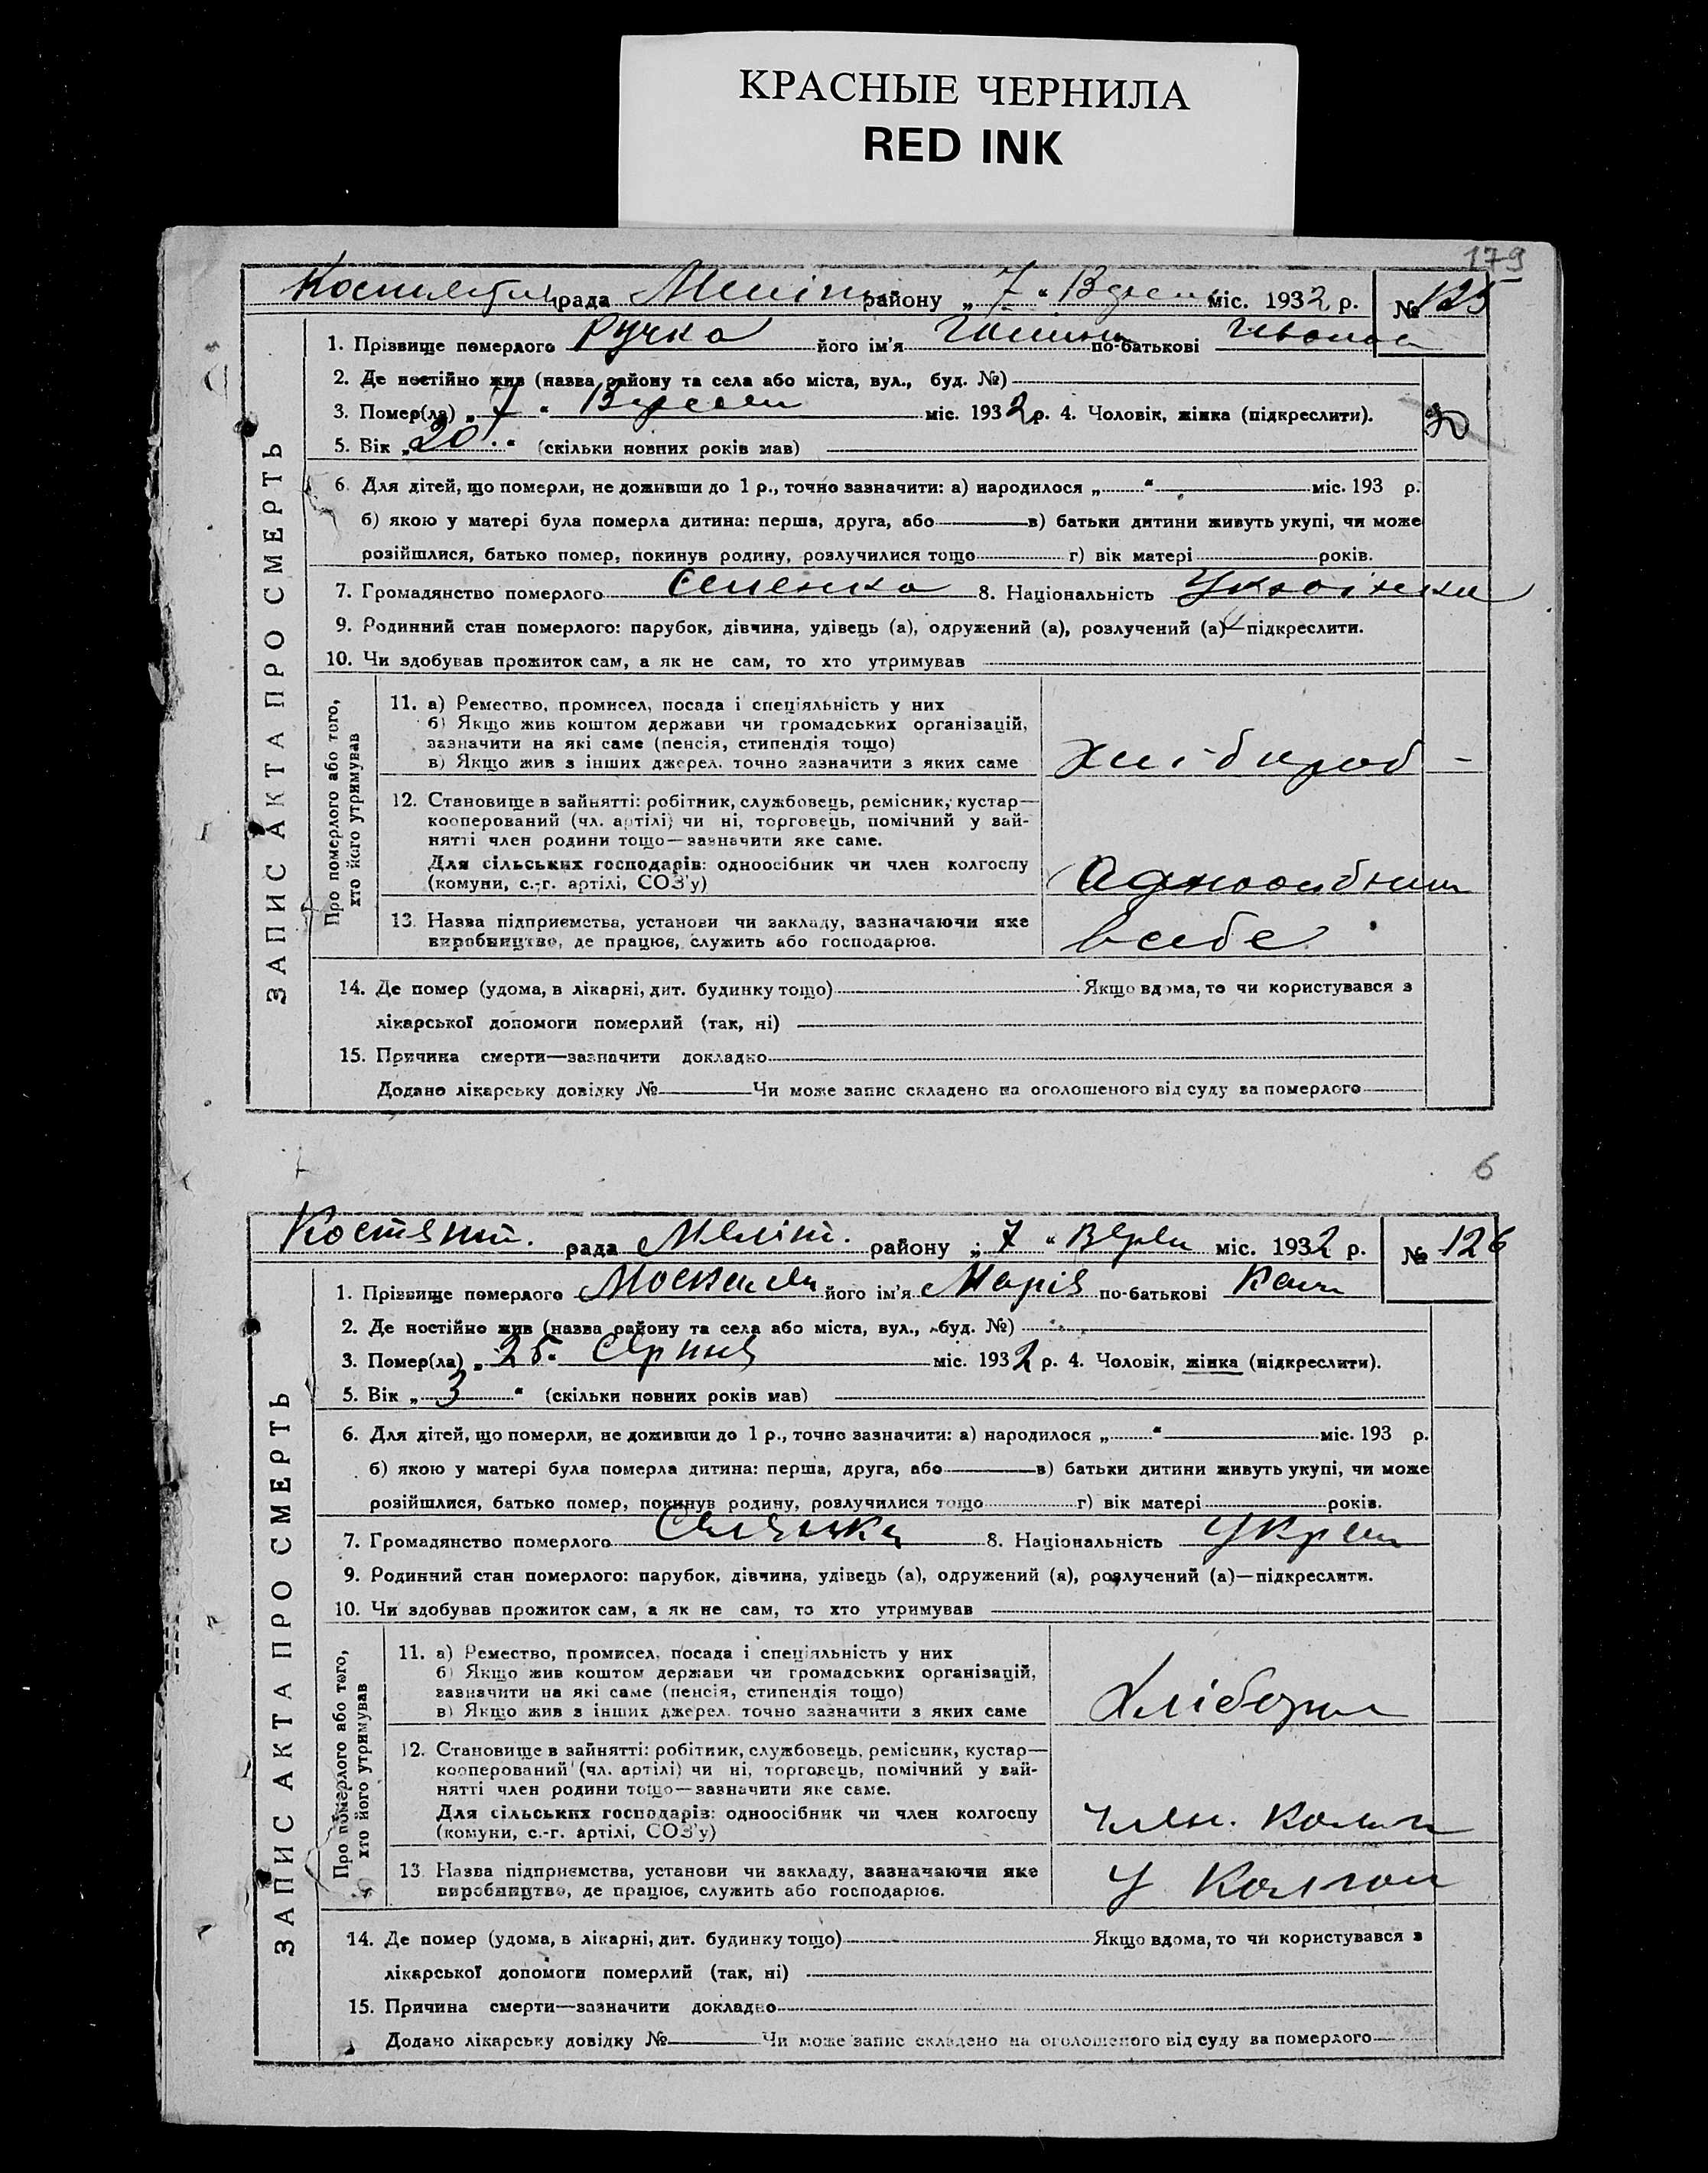 КРАСНЫЕ ЧЕРНИЛА
RED INK
179
рада район у „ 7 “ міс. 1932 р. № 125
1. Прізвище померлого Ручка його ім'я по-батькові
2. Де постійно жив (назва району та села або міста, вул., буд. №)
3. Помер(ла) „ 7 “ міс. 1932 р. 4. Чоловік, жінка (підкреслити).
5. Вік „ 20 “ (скільки повних років мав)
6. Для дітей, що померли, не доживши до 1 р., точно зазначити: а) народилося „ “ міс. 193 р.
б) якою у матері була померла дитина: перша, друга, або в) батьки дитини живуть укупі, чи може
розійшлися, батько помер, покинув родину, розлучилися тощо г) вік матері років.
7. Громадянство померлого 8. Національність
9. Родинний стан померлого: парубок, дівчина, удівець (а), одружений (а), розлучений (а)—підкреслити.
10. Чи здобував прожиток сам, а як не сам, то хто утримував
ЗАПИС АКТА ПРО СМЕРТЬ
Про померлого або того,
хто його утримував
11. а) Ремество, промисел, посада і спеціяльність у них
б) Якщо жив коштом держави чи громадських організацій,
зазначити на які саме (пенсія, стипендія тощо)
в) Якщо жив з інших джерел, точно зазначити з яких саме
12. Становище в зайнятті: робітник, службовець, ремісник, кустар—
кооперований (чл. артілі) чи ні, торговець, помічний у зай-
нятті член родини тощо—зазначити яке саме.
Для сільських господарів: одноосібник чи член колгоспу
(комуни, с.-г. артілі, СОЗ'у)
13. Назва підприємства, установи чи закладу, зазначаючи яке
виробництво, де працює, служить або господарює.
14. Де помер (удома, в лікарні, дит. будинку тощо) Якщо вдома, то чи користувався з
лікарської допомоги померлий (так, ні)
15. Причина смерти—зазначити докладно
Додано лікарську довідку № Чи може запис складено на оголошеного від суду за померлого
6
Костянт. рада Меліт. району „ 7 “ міс. 1932 р. № 126
1. Прізвище померлого його ім'я Марія по-батькові
2. Де постійно жив (назва району та села або міста, вул., буд. №)
3. Помер(ла) „ 25 “ Серпня міс. 1932 р. 4. Чоловік, жінка (підкреслити).
5. Вік „ 3 “ (скільки повних років мав)
6. Для дітей, що померли, не доживши до 1 р., точно зазначити: а) народилося „ “ міс. 193 р.
б) якою у матері була померла дитина: перша, друга, або в) батьки дитини живуть укупі, чи може
розійшлися, батько помер, покинув родину, розлучилися тощо г) вік матері років.
7. Громадянство померлого 8. Національність
9. Родинний стан померлого: парубок, дівчина, удівець (а), одружений (а), розлучений (а)—підкреслити.
10. Чи здобував прожиток сам, а як не сам, то хто утримував
ЗАПИС АКТА ПРО СМЕРТЬ
Про померлого або того,
хто його утримував
11. а) Ремество, промисел, посада і спеціяльність у них
б) Якщо жив коштом держави чи громадських організацій,
зазначити на які саме (пенсія, стипендія тощо)
в) Якщо жив з інших джерел, точно зазначити з яких саме
12. Становище в зайнятті: робітник, службовець, ремісник, кустар—
кооперований (чл. артілі) чи ні, торговець, помічний у зай-
нятті член родини тощо—зазначити яке саме.
Для сільських господарів: одноосібник чи член колгоспу
(комуни, с.-г. артілі, СОЗ'у)
13. Назва підприємства, установи чи закладу, зазначаючи яке
виробництво, де працює, служить або господарює.
14. Де помер (удома, в лікарні, дит. будинку тощо) Якщо вдома, то чи користувався з
лікарської допомоги померлий (так, ні)
15. Причина смерти—зазначити докладно
Додано лікарську довідку № Чи може запис складено на оголошеного від суду за померлого